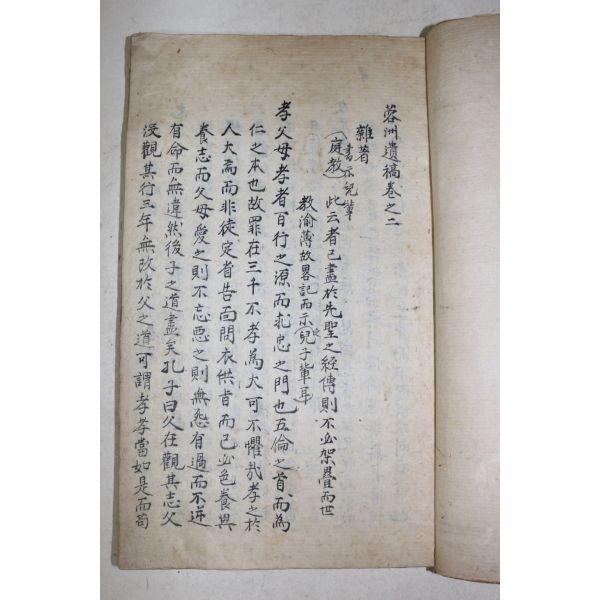 蓉洲遺稿卷之二
雜著
庭教 書示兒輩 此云者已盡於先聖之經傳則不必架疊而世
教渝薄故畧記而示兒子輩耳
孝父母孝者百行之源而求忠之門也五倫之首而為
仁之本也故罪在三千不孝為大可不懼哉孝之於
人大焉而非徒定省告面問衣供旨而已必色養與
養志而父母愛之則不忘惡之則無怨有過而不逆
有命而無違然後子之道盡矣孔子曰父在觀其志父
沒觀其行三年無改於父之道可謂孝孝當如是而苟